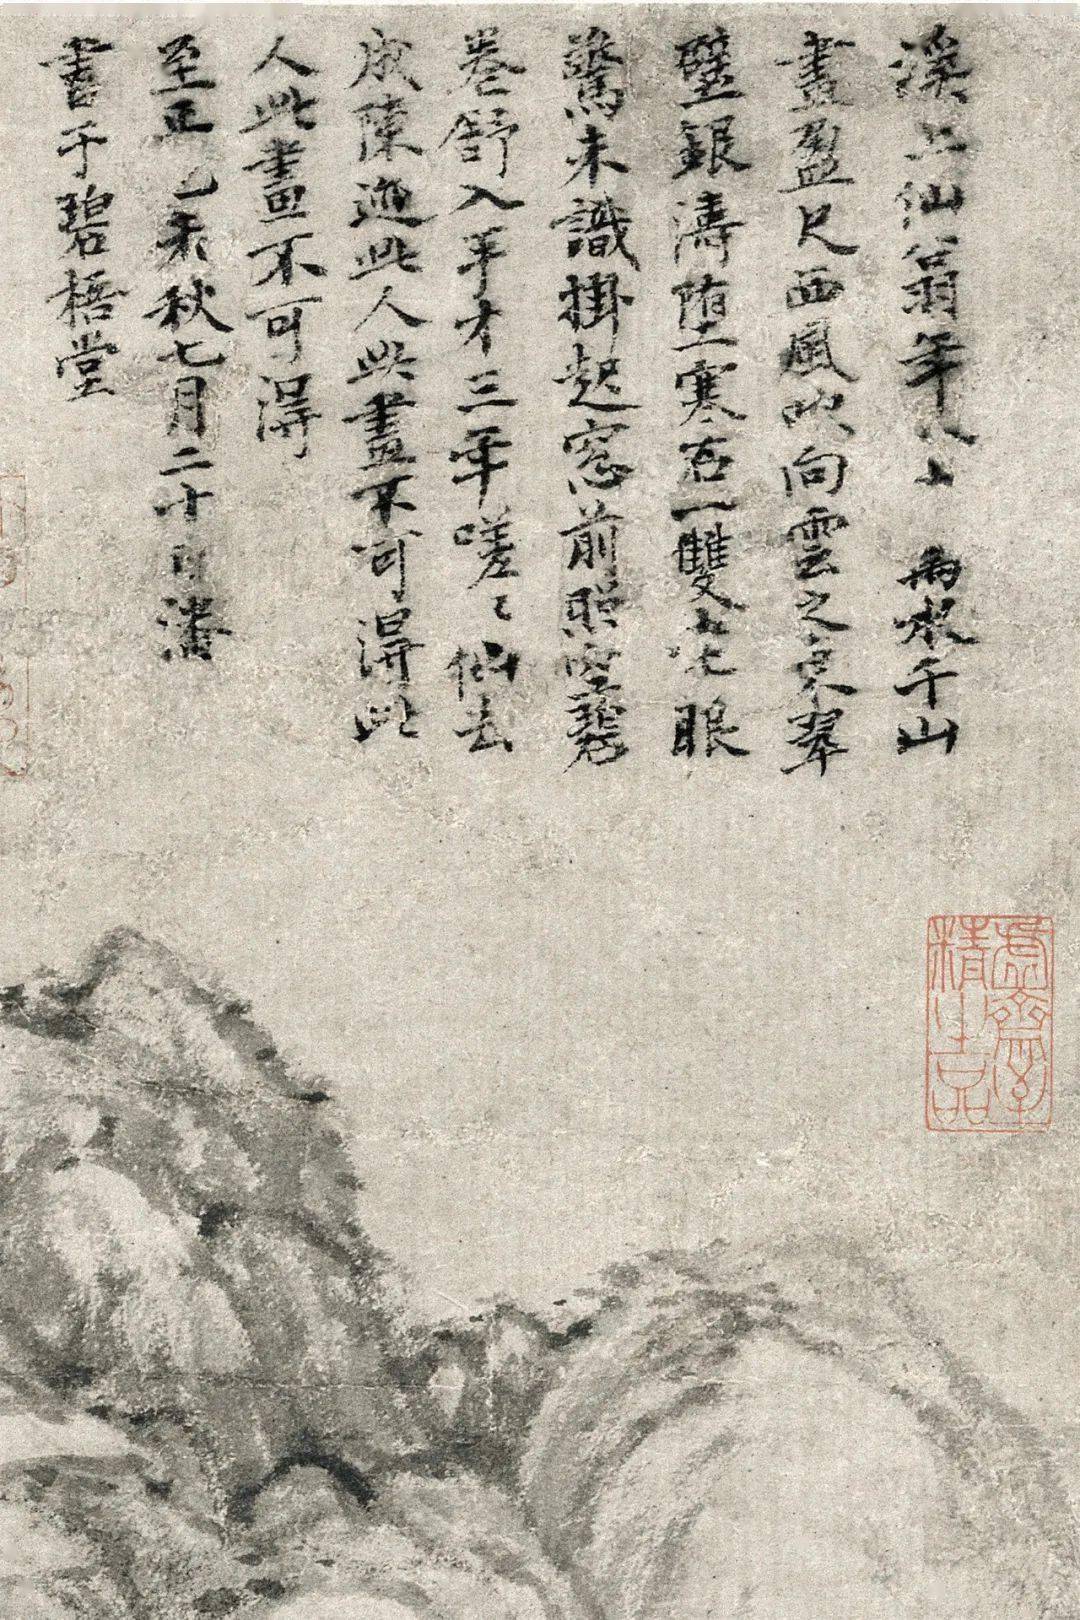 溪上仙翁年八十兩水千山
畫盈尺西風吹向雲之東翠
壁銀濤墮寒石一雙老眼
驚未識掛起窓前照空碧
卷舒入手才三年嗟〻仙去
成陳迹此人此畫不可得此
人此畫不可得
至正乙未秋七月二十日潘
書于碧梧堂
精品